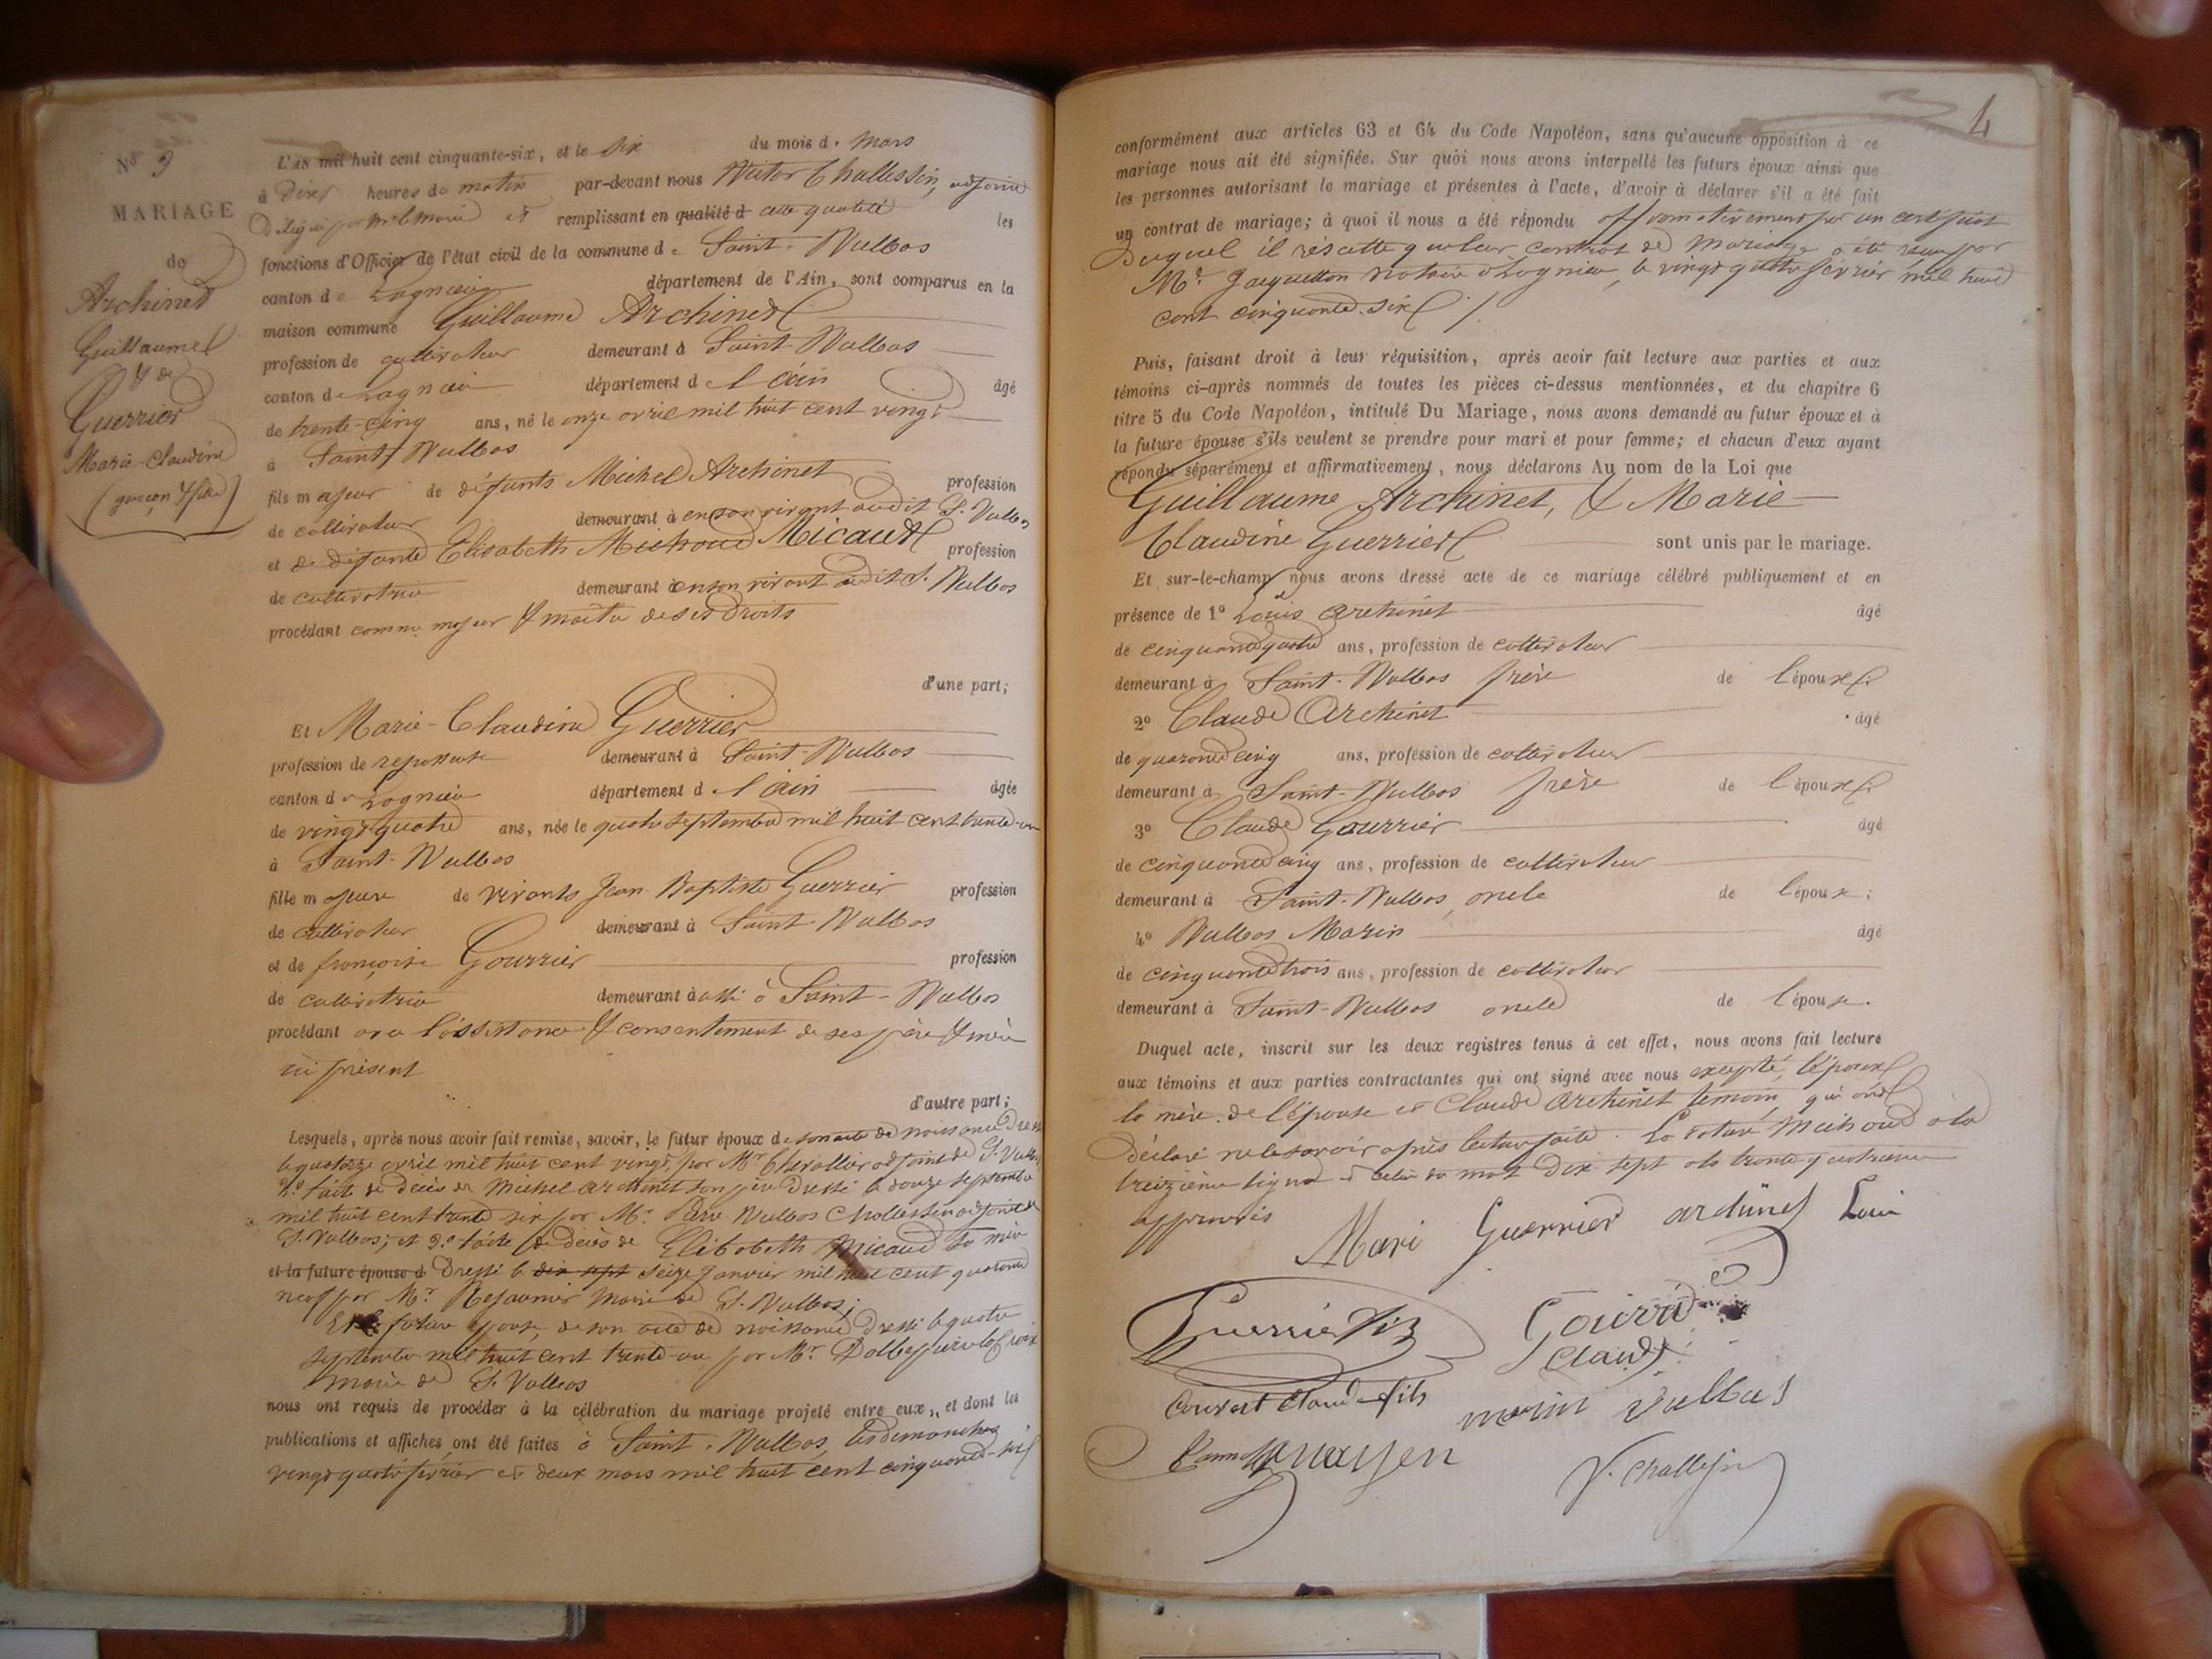 N° 3
MARIAGE
de
Archinet
Guillaume
& de
Guerrier
Marie-Claudine
(garçon & fille)
L'AN mil huit cent cinquante-six, et le six du mois de Mars
à dix heures du matin par-devant nous Victor Chollessin, adjoint
délégué par Mr le Maire et remplissant en qualité d cette qualité les
fonctions d'Officier de l'état civil de la commune de Saint-Vulbas
canton de Lagnieu département de l'Ain, sont comparus en la
maison commune Guillaume Archinet
profession de cultivateur demeurant à Saint-Vulbas
canton de Lagnieu département de l'Ain âgé
de trente-cinq ans, né le onze avril mil huit cent vingt
à Saint Vulbas
fils majeur de défunts Michel Archinet profession
de cultivateur demeurant à en son vivant audit St. Vulbas
et de défunte Elisabeth Michoud Micaud profession
de cultivatrice demeurant à en son vivant audit St. Vulbas
procédant comme majeur & maître de ses droits
d'une part;
Et Marie-Claudine Guerrier
profession de demeurant à Saint-Vulbas
canton de Lagnieu département de l'Ain âgée
de vingt quatre ans, née le quatre septembre mil huit cent trente-un
à Saint-Vulbas
fille majeure de vivants Jean-Baptiste Guerrier profession
de cultivateur demeurant à Saint-Vulbas
et de françoise Gourrier profession
de cultivatrice demeurant à aussi à Saint-Vulbas
procédant avec l'assistance & consentement de ses père & mère
ici présent
d'autre part;
Lesquels, après nous avoir fait remise, savoir, le futur époux de son acte de naissance dressé
le quatorze avril mil huit cent vingt, par Mr Chevallier adjoint de St. Vulbas
2° l'acte de décès de Michel Archinet son père dressé le douze septembre
mil huit cent trente six par Mr. Vulbas Chollessin adjoint de
St. Vulbas; et 3° l'acte de décès de Elisabeth Micaud sa mère
et la future épouse d dressé le dix sept seize janvier mil huit cent quarante
neuf par Mr. Maire de St. Vulbas;
Et la future épouse, de son acte de naissance dressé le quatre
septembre mil huit cent trente-un par Mr.
Maire de St. Vulbas
nous ont requis de procéder à la célébration du mariage projeté entre eux, et dont les
publications et affiches ont été faites à Saint-Vulbas, les dimanches
vingt quatre février et deux mars mil huit cent cinquante-six
4
conformément aux articles 63 et 64 du Code Napoléon, sans qu'aucune opposition à ce
mariage nous ait été signifiée. Sur quoi nous avons interpellé les futurs époux ainsi que
les personnes autorisant le mariage et présentes à l'acte, d'avoir à déclarer s'il a été fait
un contrat de mariage; à quoi il nous a été répondu affirmativement par un certificat
duquel il résulte que leur contrat de Mariage a été reçu par
Me. Jacquetton notaire à Lagnieu, le vingt quatre février mil huit
cent cinquante-six /
Puis, faisant droit à leur réquisition, après avoir fait lecture aux parties et aux
témoins ci-après nommés de toutes les pièces ci-dessus mentionnées, et du chapitre 6
titre 5 du Code Napoléon, intitulé Du Mariage, nous avons demandé au futur époux et à
la future épouse s'ils veulent se prendre pour mari et pour femme; et chacun d'eux ayant
répondu séparément et affirmativement, nous déclarons Au nom de la Loi que
Guillaume Archinet, & Marie
Claudine Guerrier sont unis par le mariage.
Et sur-le-champ nous avons dressé acte de ce mariage célébré publiquement et en
présence de 1° Louis Archinet âgé
de cinquante quatre ans, profession de cultivateur
demeurant à Saint-Vulbas frère de l'époux;
2° Claude Archinet âgé
de quarante cinq ans, profession de cultivateur
demeurant à Saint-Vulbas frère de l'époux;
3° Claude Gourrier âgé
de cinquante cinq ans, profession de cultivateur
demeurant à Saint-Vulbas, oncle de l'épouse;
4° Vulbas Marin âgé
de cinquante trois ans, profession de cultivateur
demeurant à Saint-Vulbas oncle de l'épouse.
Duquel acte, inscrit sur les deux registres tenus à cet effet, nous avons fait lecture
aux témoins et aux parties contractantes qui ont signé avec nous excepté, l'époux
la mère de l'épouse et Claude Archinet témoin, qui ont
déclaré ne le savoir après lecture faite. La rature Michoud à la
treizième ligne et celle du mot dix-sept à la trente quatrième
approuvés
Mari Guerrier archinet Loui
Guerrier Gourrié
Claude
Couvert Claude fils marin vulbas
V. Chollessin